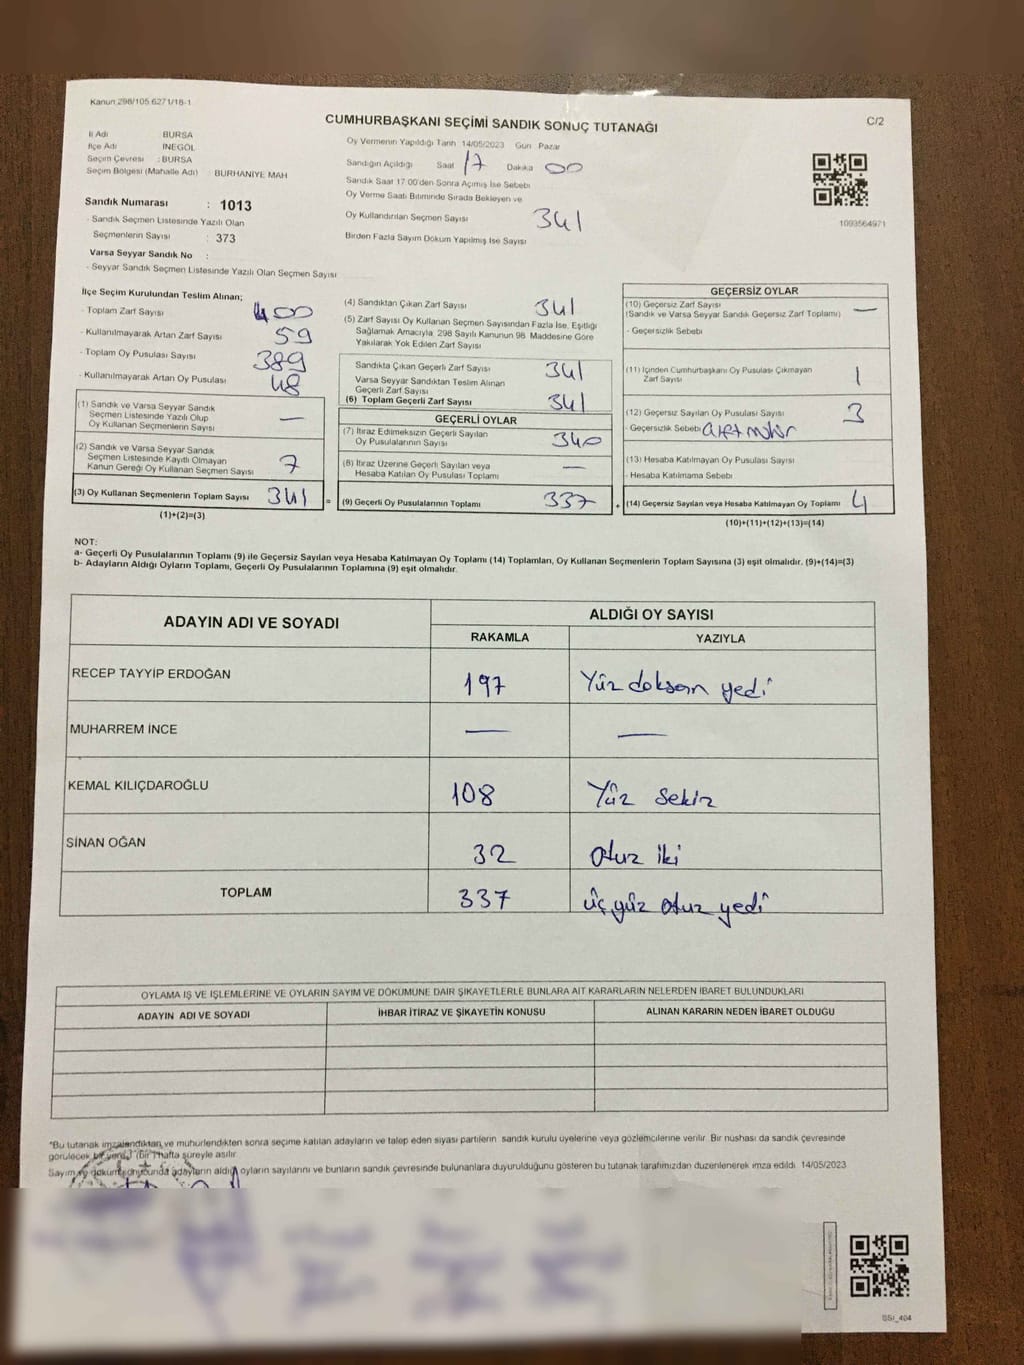 Kanun 298/105 6271/18-1
CUMHURBAŞKANI SEÇİMİ SANDIK SONUÇ TUTANAĞI
C/2
İl Adı BURSA
İlçe Adı İNEGÖL
Seçim Çevresi : BURSA
Seçim Bölgesi (Mahalle Adı) : BURHANİYE MAH
Sandık Numarası : 1013
- Sandık Seçmen Listesinde Yazılı Olan
Seçmenlerin Sayısı : 373
Varsa Seyyar Sandık No :
- Seyyar Sandık Seçmen Listesinde Yazılı Olan Seçmen Sayısı
Oy Vermenin Yapıldığı Tarih 14/05/2023 Gün Pazar
Sandığın Açıldığı Saat 17 Dakika 00
Sandık Saat 17.00'den Sonra Açılmış İse Sebebi
Oy Verme Saati Bitiminde Sırada Bekleyen ve
Oy Kullandırılan Seçmen Sayısı 341
Birden Fazla Sayım Döküm Yapılmış İse Sayısı
1093564971
İlçe Seçim Kurulundan Teslim Alınan;
- Toplam Zarf Sayısı 400
- Kullanılmayarak Artan Zarf Sayısı 59
- Toplam Oy Pusulası Sayısı 389
- Kullanılmayarak Artan Oy Pusulası 48
(1) Sandık ve Varsa Seyyar Sandık
Seçmen Listesinde Yazılı Olup
Oy Kullanan Seçmenlerin Sayısı —
(2) Sandık ve Varsa Seyyar Sandık
Seçmen Listesinde Kayıtlı Olmayan
Kanun Gereği Oy Kullanan Seçmen Sayısı 7
(3) Oy Kullanan Seçmenlerin Toplam Sayısı 341 =
(1)+(2)=(3)
(4) Sandıktan Çıkan Zarf Sayısı 341
(5) Zarf Sayısı Oy Kullanan Seçmen Sayısından Fazla İse, Eşitliği
Sağlamak Amacıyla, 298 Sayılı Kanunun 98. Maddesine Göre
Yakılarak Yok Edilen Zarf Sayısı
Sandıkta Çıkan Geçerli Zarf Sayısı 341
Varsa Seyyar Sandıktan Teslim Alınan
Geçerli Zarf Sayısı
(6) Toplam Geçerli Zarf Sayısı 341
GEÇERLİ OYLAR
(7) İtiraz Edilmeksizin Geçerli Sayılan
Oy Pusulalarının Sayısı 340
(8) İtiraz Üzerine Geçerli Sayılan veya
Hesaba Katılan Oy Pusulası Toplamı —
(9) Geçerli Oy Pusulalarının Toplamı 337 +
GEÇERSİZ OYLAR
(10) Geçersiz Zarf Sayısı
(Sandık ve Varsa Seyyar Sandık Geçersiz Zarf Toplamı) —
- Geçersizlik Sebebi
(11) İçinden Cumhurbaşkanı Oy Pusulası Çıkmayan
Zarf Sayısı 1
(12) Geçersiz Sayılan Oy Pusulası Sayısı 3
- Geçersizlik Sebebi
(13) Hesaba Katılmayan Oy Pusulası Sayısı
- Hesaba Katılmama Sebebi
(14) Geçersiz Sayılan veya Hesaba Katılmayan Oy Toplamı 4
(10)+(11)+(12)+(13)=(14)
NOT:
a- Geçerli Oy Pusulalarının Toplamı (9) ile Geçersiz Sayılan veya Hesaba Katılmayan Oy Toplamı (14) Toplamları, Oy Kullanan Seçmenlerin Toplam Sayısına (3) eşit olmalıdır. (9)+(14)=(3)
b- Adayların Aldığı Oyların Toplamı, Geçerli Oy Pusulalarının Toplamına (9) eşit olmalıdır.
ADAYIN ADI VE SOYADI
ALDIĞI OY SAYISI
RAKAMLA YAZIYLA
RECEP TAYYİP ERDOĞAN 197 Yüz doksan yedi
MUHARREM İNCE — —
KEMAL KILIÇDAROĞLU 108 Yüz sekiz
SİNAN OĞAN 32 Otuz iki
TOPLAM 337 üç yüz otuz yedi
OYLAMA İŞ VE İŞLEMLERİNE VE OYLARIN SAYIM VE DÖKÜMÜNE DAİR ŞİKAYETLERLE BUNLARA AİT KARARLARIN NELERDEN İBARET BULUNDUKLARI
ADAYIN ADI VE SOYADI İHBAR İTİRAZ VE ŞİKAYETİN KONUSU ALINAN KARARIN NEDEN İBARET OLDUĞU
*Bu tutanak imzalandıktan ve mühürlendikten sonra seçime katılan adayların ve talep eden siyasi partilerin sandık kurulu üyelerine veya gözlemcilerine verilir. Bir nüshası da sandık çevresinde
görülecek bir yere 1 (bir) hafta süreyle asılır.
Sayım ve döküm sonucunda adayların aldığı oyların sayılarını ve bunların sandık çevresinde bulunanlara duyurulduğunu gösteren bu tutanak tarafımızdan düzenlenerek imza edildi. 14/05/2023
SSI_404